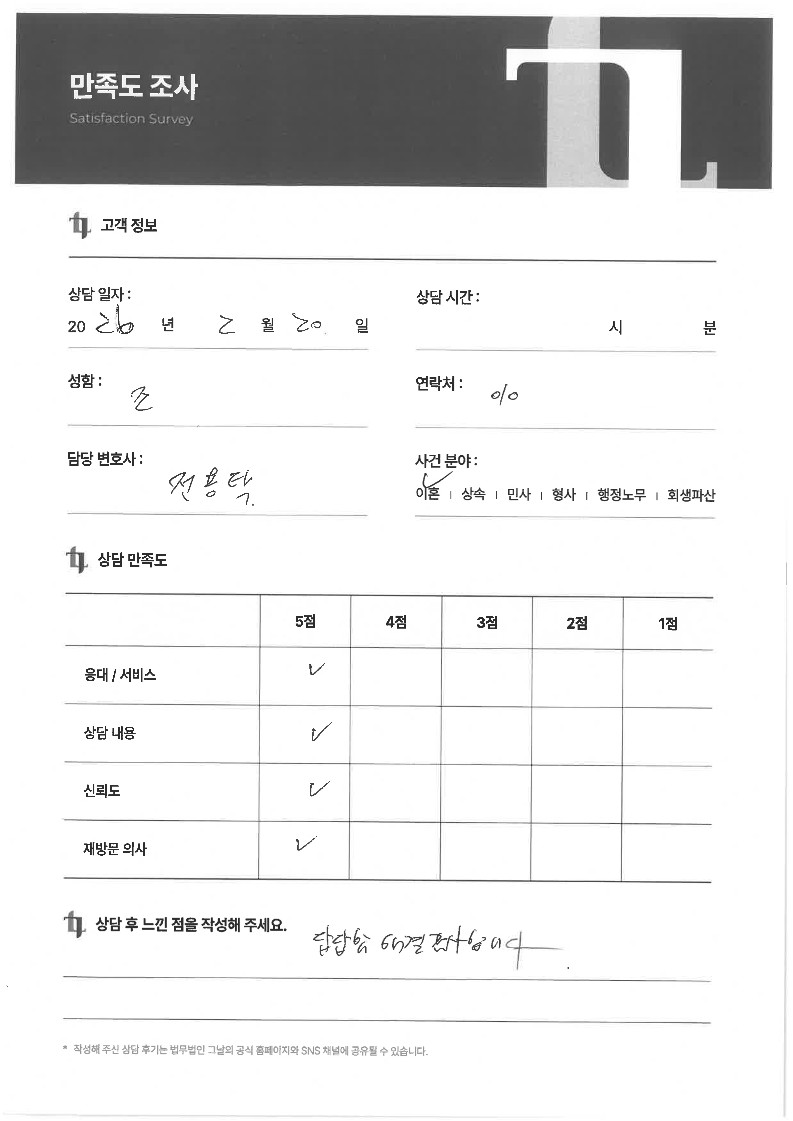 만족도 조사
Satisfaction Survey
고객 정보
상담 일자 :
상담 시간 :
20 26 년 2 월 20. 일
시 분
성함 :
조
연락처 :
010
담당 변호사 :
전용탁
사건 분야 :
이혼 | 상속 | 민사 | 형사 | 행정노무 | 회생파산
상담 만족도
5점 4점 3점 2점 1점
응대 / 서비스 ✓
상담 내용 ✓
신뢰도 ✓
재방문 의사 ✓
상담 후 느낀 점을 작성해 주세요.
답답함 해결
* 작성해 주신 상담 후기는 법무법인 그날의 공식 홈페이지와 SNS 채널에 공유될 수 있습니다.